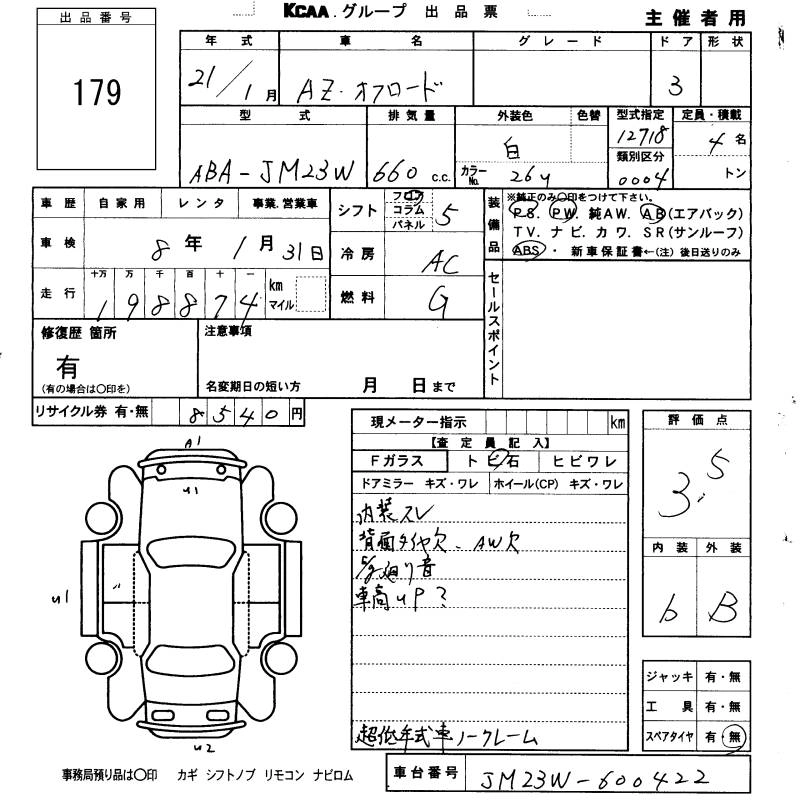 KCAA グループ 出品票
主催者用
出品番号
179
年式 車名 グレード ドア 形状
21/1月 AZ・オフロード 3
型式 排気量 外装色 色替 型式指定 定員・積載
ABA-JM23W 660 c.c. 白 12718 4名
カラーNo. 26U 類別区分 0004 トン
車歴 自家用 レンタ 事業.営業車
車検 8年 1月 31日
走行 十万 万 千 百 十 一 km マイル
198874
シフト フロア コラム パネル 5
冷房 AC
燃料 G
装備品 ※純正のみ○印をつけて下さい。
P.S. P.W. 純A.W. A.B(エアバック)
T.V. ナビ. カワ. S.R(サンルーフ)
ABS・ 新車保証書←(注) 後日送りのみ
セールスポイント
修復歴 箇所
有
(有の場合は○印を)
注意事項
名変期日の短い方 月 日まで
リサイクル券 有・無 8540円
現メーター指示 km
【査定員記入】
Fガラス トビ石 ヒビワレ
ドアミラー キズ・ワレ ホイール(CP) キズ・ワレ
内装スレ
背面タイヤ欠、AW欠
廻り音
車高UP?
超低年式車ノークレーム
評価点
3.5
内装 外装
b B
ジャッキ 有・無
工具 有・無
スペアタイヤ 有・無
A1
U1
U1
U2
事務局預り品は○印 カギ シフトノブ リモコン ナビロム
車台番号 JM23W-600422